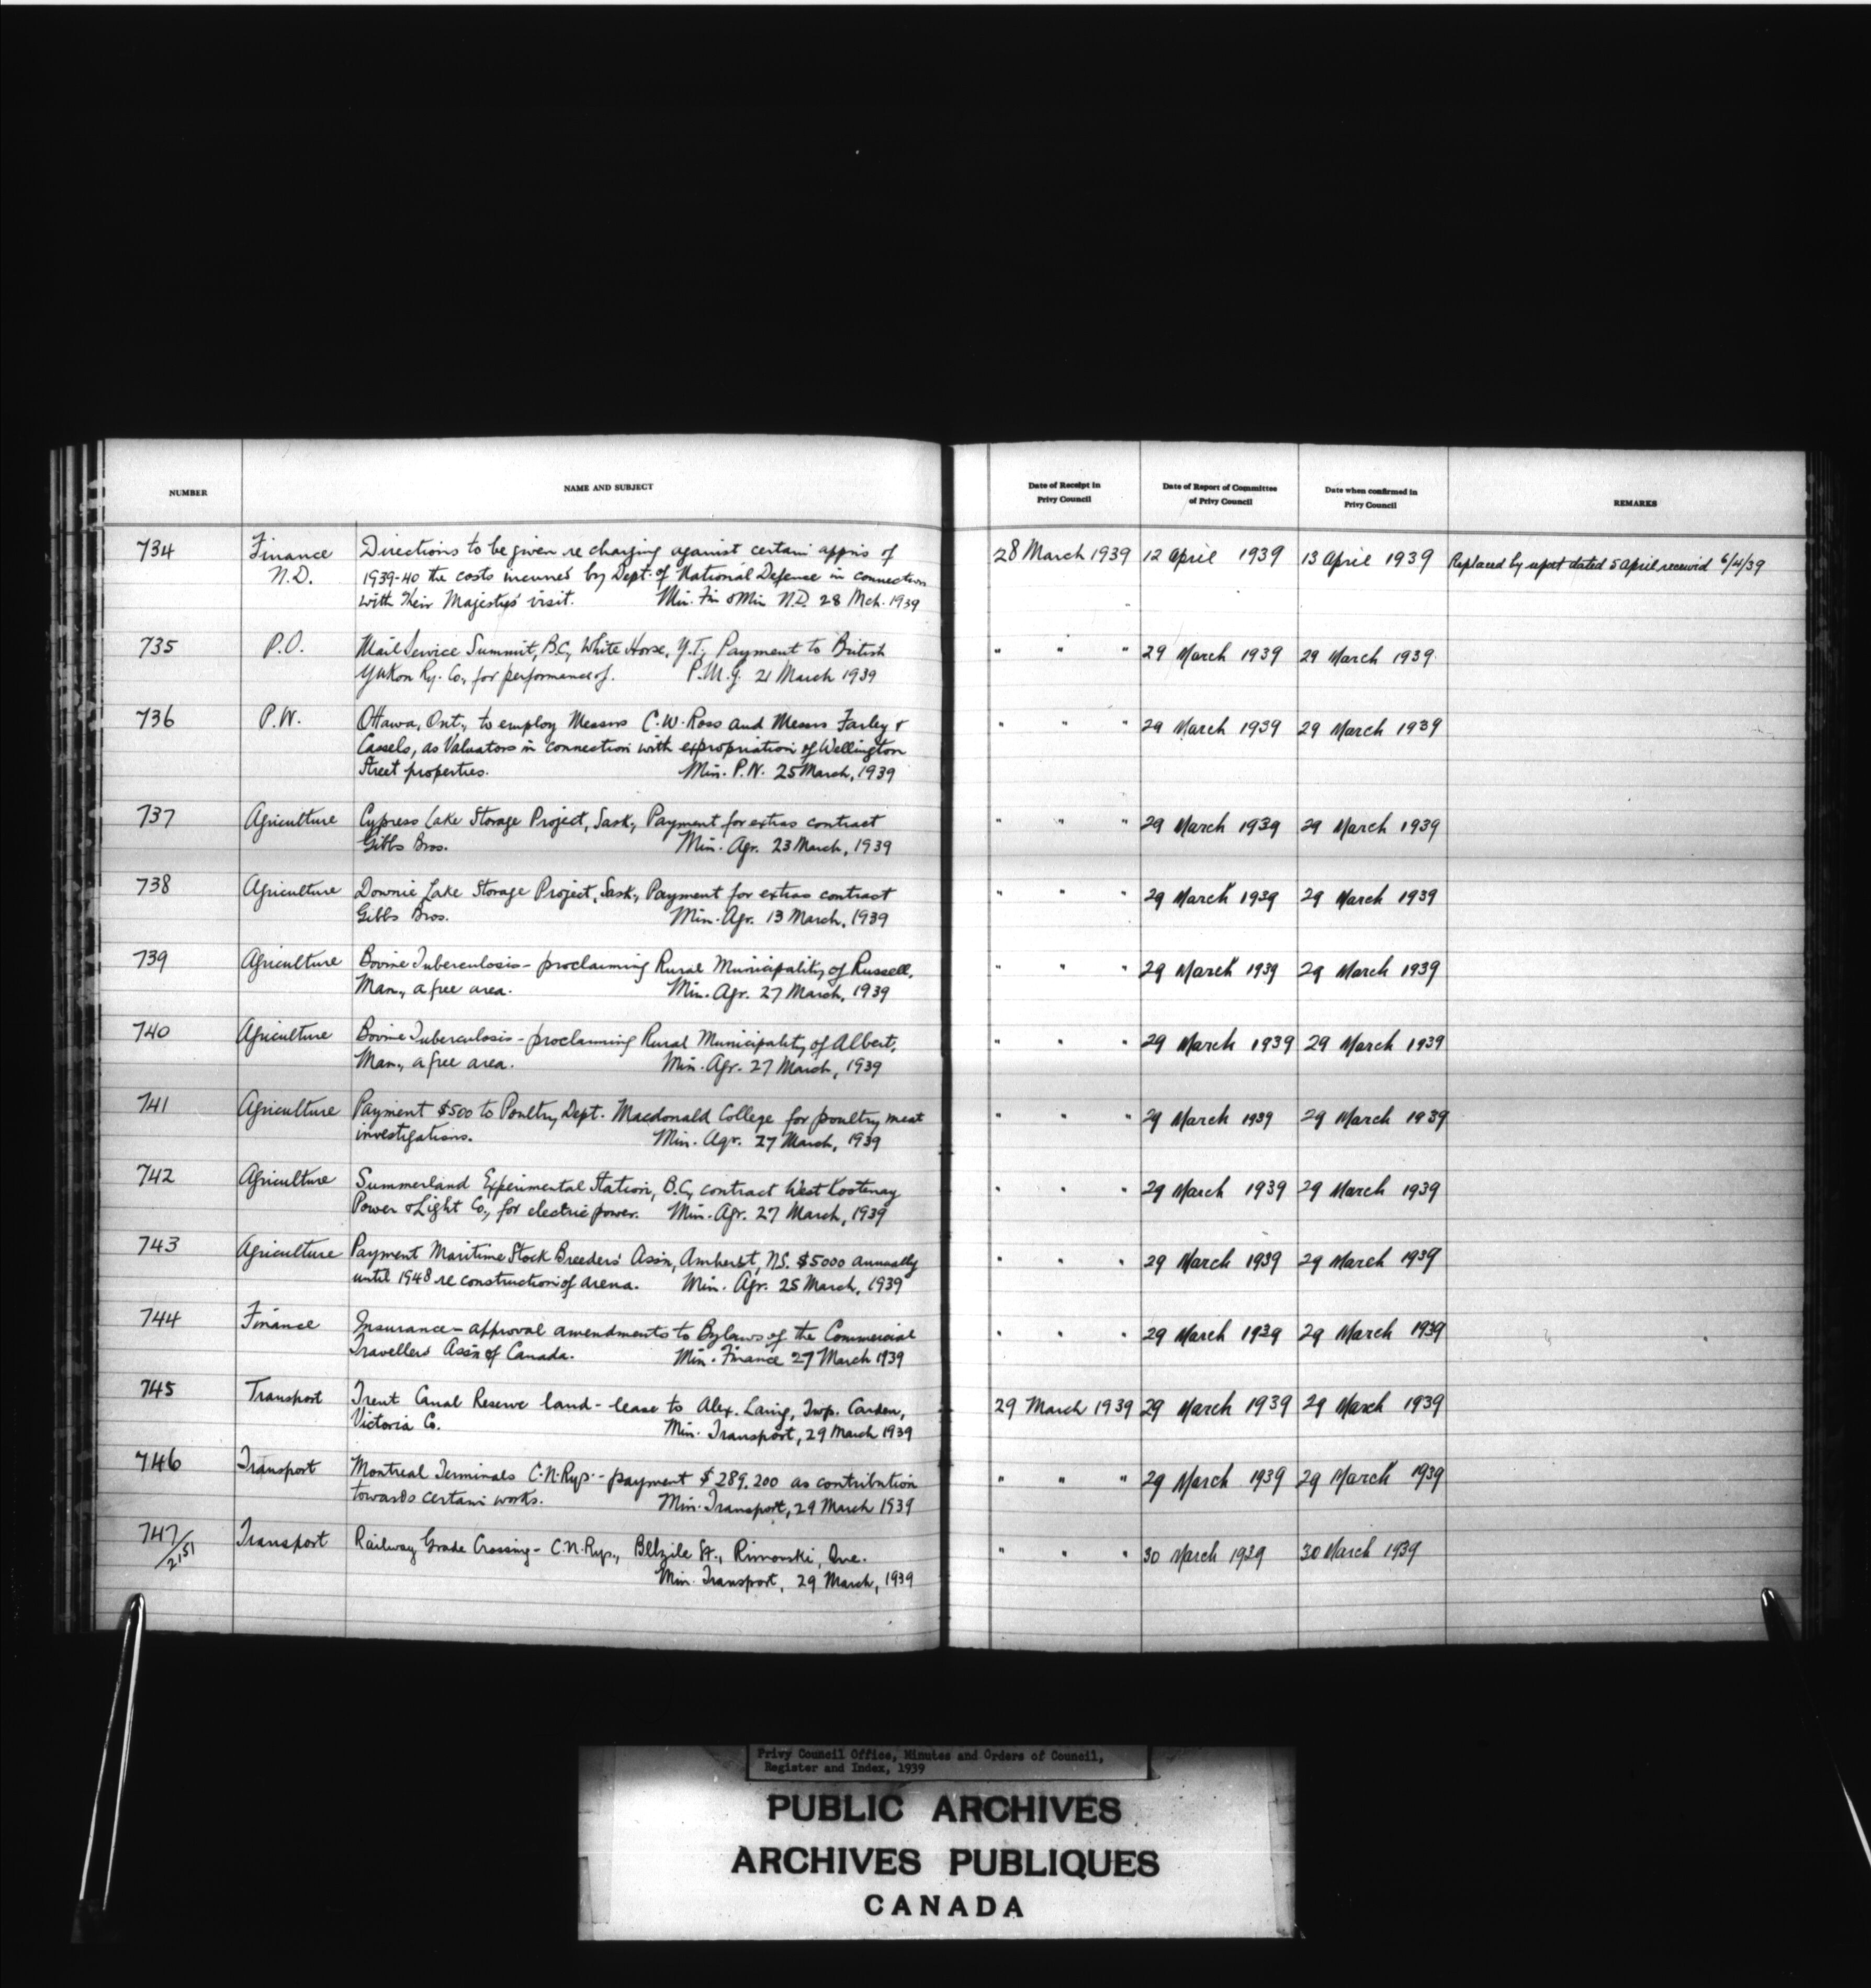 NUMBER NAME AND SUBJECT Date of Receipt in Privy Council Date of Report of Committee of Privy Council Date when confirmed in Privy Council REMARKS
734 Finance Directions to be given re charging against certain apprns of 28 March 1939 12 April 1939 13 April 1939 Replaced by report dated 5 April received 6/4/39
N.D. 1939-40 the costs incurred by Dept. of National Defence in connection
with Their Majestys' visit. Min. Fin & Min N.D. 28 Mch. 1939
735 P.O. Mail Service Summit, B.C., White Horse, Y.T., Payment to British " " " 29 March 1939 29 March 1939
Yukon Ry. Co., for performance of. P.M.G. 21 March 1939
736 P.W. Ottawa, Ont., to employ Messrs C.W. Ross and Messrs Farley & " " " 29 March 1939 29 March 1939
Cassels, as Valuators in connection with expropriation of Wellington
Street properties. Min. P.W. 25 March, 1939
737 Agriculture Cypress Lake Storage Project, Sask., Payment for extras contract " " " 29 March 1939 29 March 1939
Gibbs Bros. Min. Agr. 23 March, 1939
738 Agriculture Downie Lake Storage Project, Sask., Payment for extras contract " " " 29 March 1939 29 March 1939
Gibbs Bros. Min. Agr. 13 March, 1939
739 Agriculture Bovine Tuberculosis - proclaiming Rural Municipality of Russell, " " " 29 March 1939 29 March 1939
Man., a free area. Min. Agr. 27 March, 1939
740 Agriculture Bovine Tuberculosis - proclaiming Rural Municipality of Albert, " " " 29 March 1939 29 March 1939
Man., a free area. Min. Agr. 27 March, 1939
741 Agriculture Payment $500 to Poultry Dept. Macdonald College for poultry meat " " " 29 March 1939 29 March 1939
investigations. Min. Agr. 27 March, 1939
742 Agriculture Summerland Experimental Station, B.C., contract West Kootenay " " " 29 March 1939 29 March 1939
Power & Light Co., for electric power. Min. Agr. 27 March, 1939
743 Agriculture Payment Maritime Stock Breeders' Ass'n, Amherst, N.S. $5000 annually " " " 29 March 1939 29 March 1939
until 1948 re construction of arena. Min. Agr. 25 March, 1939
744 Finance Insurance - approval amendments to Bylaws of the Commercial " " " 29 March 1939 29 March 1939
Travellers' Ass'n of Canada. Min. Finance 27 March 1939
745 Transport Trent Canal Reserve land - lease to Alex. Laing, Twp. Carden, 29 March 1939 29 March 1939 29 March 1939
Victoria Co. Min. Transport, 29 March 1939
746 Transport Montreal Terminals C.N.Rys. - payment $289,200 as contribution " " " 29 March 1939 29 March 1939
towards certain works. Min. Transport, 29 March 1939
747/2151 Transport Railway Grade Crossing - C.N.Rys., Belzile St., Rimouski, Que. " " " 30 March 1939 30 March 1939
Min. Transport, 29 March, 1939
Privy Council Office, Minutes and Orders of Council,
Register and Index, 1939
PUBLIC ARCHIVES
ARCHIVES PUBLIQUES
CANADA